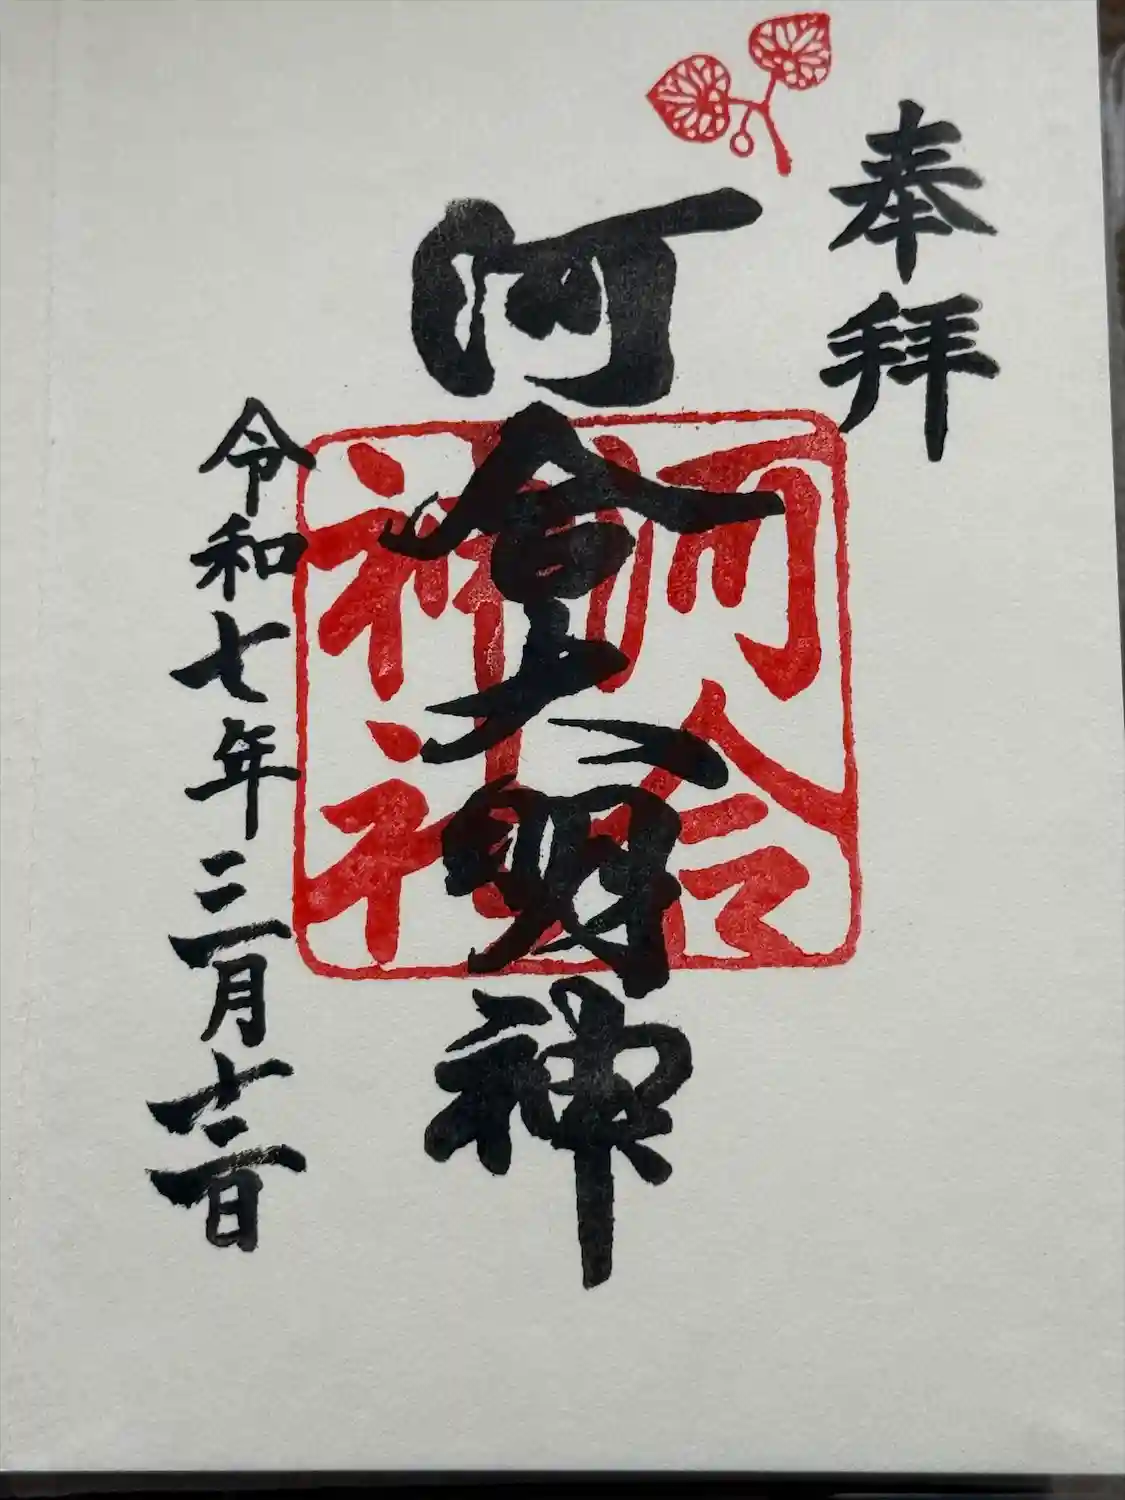 奉拝
河合大明神
河合
神社
令和七年三月十二日